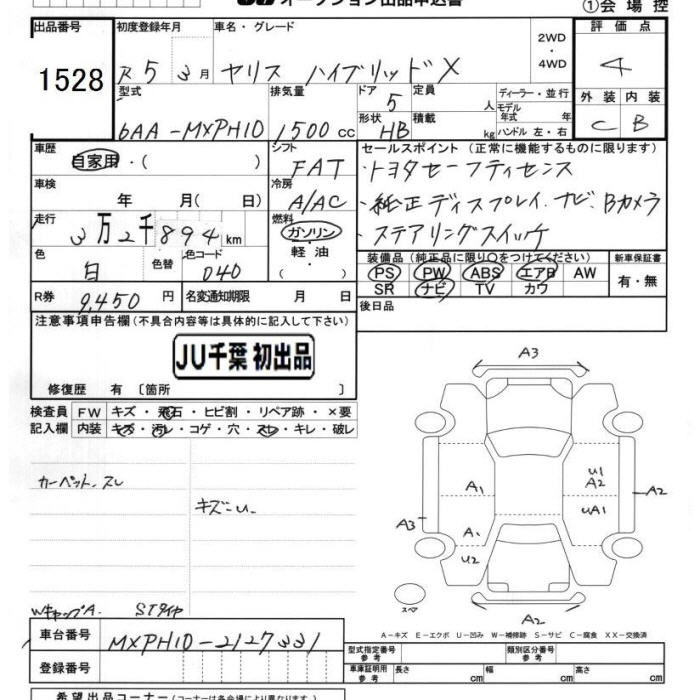 オークション出品申込書
①会場控
出品番号
1528
初度登録年月
R5 3月
車名・グレード
ヤリス ハイブリッドX
2WD
・
4WD
評価点
4
型式
6AA-MXPH10
排気量
1500 cc
ドア
5
定員
人
形状
HB
積載
kg
ディーラー・並行
モデル年式 年
ハンドル 左・右
外装 内装
C B
車歴
自家用・( )
シフト
FAT
セールスポイント (正常に機能するものに限ります)
・トヨタセーフティセンス
・純正ディスプレイ、ナビ、Bカメラ
・ステアリングスイッチ
車検
年 月( 日)
冷房
A/AC
走行
3万2千894km
燃料
ガソリン
・
軽油
・
( )
色
白
色替
色コード
040
装備品 (純正品に限り○をつけてください)
PS PW ABS エアB AW
SR ナビ TV カワ
新車保証書
有・無
R券
9,450円
名変通知期限 月 日
後日品
注意事項申告欄 (不具合内容等は具体的に記入して下さい)
JU千葉 初出品
修復歴 有〔箇所 〕
検査員
記入欄
FW キズ・飛石・ヒビ割・リペア跡・×要
内装 キズ・汚レ・コゲ・穴・スレ・キレ・破レ
カーペット、スレ
キズ-U-
WキャップA. STタイヤ
A3
A1
U1
A2
UA1
A2
A3
A1
U2
スペア
A2
A−キズ E−エクボ U−凹み W−補修跡 S−サビ C−腐食 XX−交換済
車台番号
MXPH10-2127331
登録番号
型式指定番号
参考
類別区分番号
参考
車庫証明用
参考
長さ cm
幅 cm
高さ cm
希望出品コーナー (コーナーは各会場により異なります)